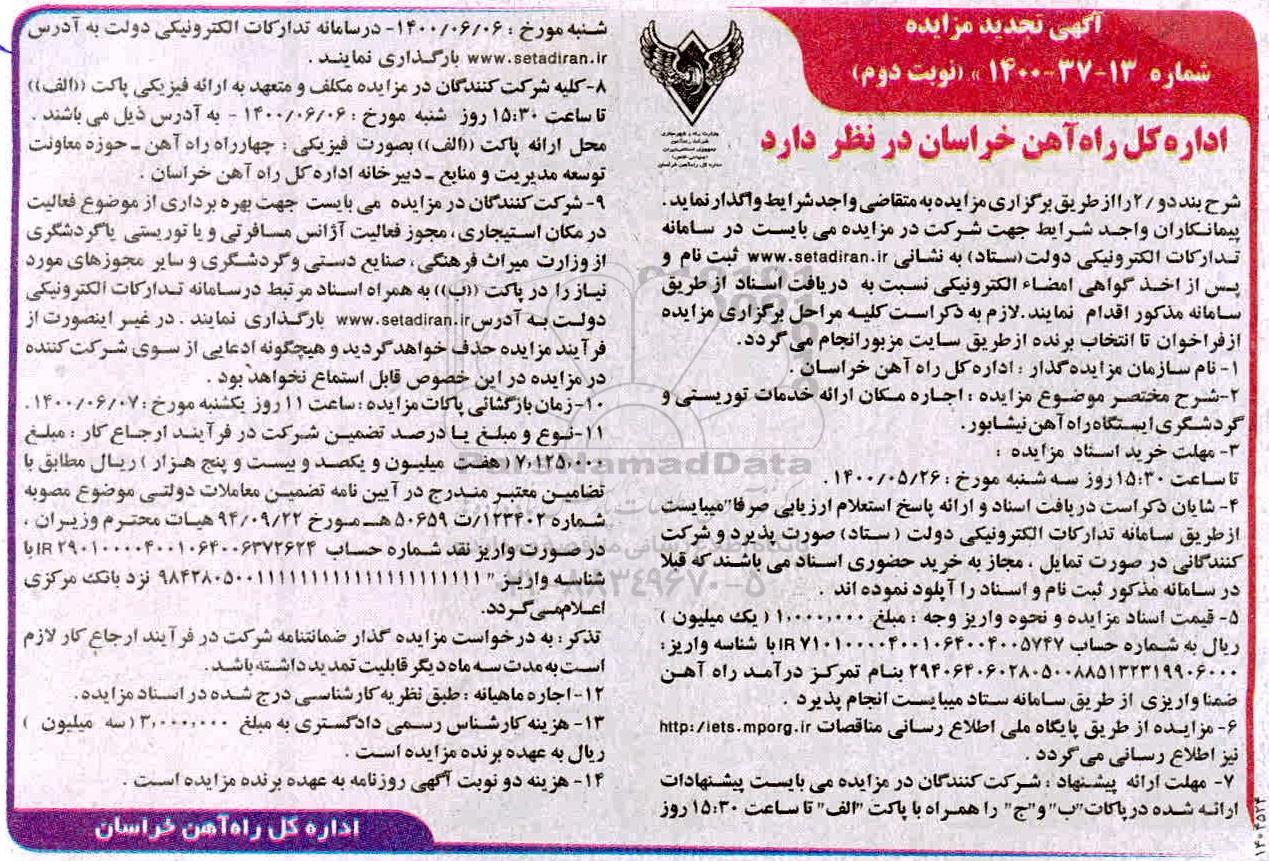 آگهی تجدید مزایده
شماره ۱۳-۳۷-۱۴۰۰ » (نوبت دوم)
اداره کل راه آهن خراسان در نظر دارد
وزارت راه و شهرسازی
اداره کل راه‌آهن خراسان
شرح بند دو /۲ را از طریق برگزاری مزایده به متقاضی واجد شرایط واگذار نماید.
پیمانکاران واجد شرایط جهت شرکت در مزایده می بایست در سامانه
تدارکات الکترونیکی دولت (ستاد) به نشانی www.setadiran.ir ثبت نام و
پس از اخذ گواهی امضاء الکترونیکی نسبت به دریافت اسناد از طریق
سامانه مذکور اقدام نمایند. لازم به ذکر است کلیه مراحل برگزاری مزایده
از فراخوان تا انتخاب برنده از طریق سایت مزبور انجام می گردد.
۱- نام سازمان مزایده گذار : اداره کل راه آهن خراسان .
۲-شرح مختصر موضوع مزایده : اجاره مکان ارائه خدمات توریستی و
گردشگری ایستگاه راه آهن نیشابور.
۳- مهلت خرید اسناد مزایده :
تا ساعت ۱۵:۳۰ روز سه شنبه مورخ : ۱۴۰۰/۰۵/۲۶ .
۴- شایان ذکر است دریافت اسناد و ارائه پاسخ استعلام ارزیابی صرفا" میبایست
از طریق سامانه تدارکات الکترونیکی دولت ( ستاد) صورت پذیرد و شرکت
کنندگانی در صورت تمایل ، مجاز به خرید حضوری اسناد می باشند که قبلا
در سامانه مذکور ثبت نام و اسناد را آپلود نموده اند .
۵- قیمت اسناد مزایده و نحوه واریز وجه : مبلغ ۱,۰۰۰,۰۰۰ ( یک میلیون )
ریال به شماره حساب IR۷۱۰۱۰۰۰۰۴۰۰۱۰۶۴۰۰۴۰۰۵۷۴۷ با شناسه واریز :
۲۹۴۰۶۴۰۶۰۲۸۰۵۰۰۸۸۵۱۳۲۳۱۹۹۰۶۰۰۰ بنام تمرکز درآمد راه آهن
ضمنا واریزی از طریق سامانه ستاد میبایست انجام پذیرد .
۶- مزایده از طریق پایگاه ملی اطلاع رسانی مناقصات http:/iets.mporg.ir
نیز اطلاع رسانی می گردد .
۷- مهلت ارائه پیشنهاد : شرکت کنندگان در مزایده می بایست پیشنهادات
ارائه شده در پاکات"ب" و"ج" را همراه با پاکت "الف" تا ساعت ۱۵:۳۰ روز
شنبه مورخ : ۱۴۰۰/۰۶/۰۶- در سامانه تدارکات الکترونیکی دولت به آدرس
www.setadiran.ir بارگذاری نمایند .
۸-کلیه شرکت کنندگان در مزایده مکلف و متعهد به ارائه فیزیکی پاکت ((الف))
تا ساعت ۱۵:۳۰ روز شنبه مورخ : ۱۴۰۰/۰۶/۰۶ - به آدرس ذیل می باشند .
محل ارائه پاکت ((الف)) بصورت فیزیکی : چهارراه راه آهن ـ حوزه معاونت
توسعه مدیریت و منابع ـ دبیرخانه اداره کل راه آهن خراسان .
۹- شرکت کنندگان در مزایده می بایست جهت بهره برداری از موضوع فعالیت
در مکان استیجاری، مجوز فعالیت آژانس مسافرتی و یا توریستی یا گردشگری
از وزارت میراث فرهنگی، صنایع دستی و گردشگری و سایر مجوزهای مورد
نیاز را در پاکت ((ب)) به همراه اسناد مرتبط در سامانه تدارکات الکترونیکی
دولت به آدرس www.setadiran.ir بارگذاری نمایند . در غیر اینصورت از
فرآیند مزایده حذف خواهد گردید و هیچگونه ادعایی از سوی شرکت کننده
در مزایده در این خصوص قابل استماع نخواهد بود .
۱۰-زمان بازگشائی پاکات مزایده : ساعت ۱۱ روز یکشنبه مورخ : ۱۴۰۰/۰۶/۰۷.
۱۱-نوع و مبلغ یا درصد تضمین شرکت در فرآیند ارجاع کار : مبلغ
۷,۱۲۵,۰۰۰ ( هفت میلیون و یکصد و بیست و پنج هزار ) ریال مطابق با
تضامین معتبر مندرج در آیین نامه تضمین معاملات دولتی موضوع مصوبه
شماره ۱۲۳۴۰۲/ت ۵۰۶۵۹ هـ مورخ ۹۴/۰۹/۲۲ هیات محترم وزیران ،
در صورت واریز نقد شماره حساب IR۲۹۰۱۰۰۰۰۴۰۰۱۰۶۴۰۰۶۳۷۲۶۲۴ با
شناسه واریز " ۹۸۴۲۸۰۵۰۰۱۱۱۱۱۱۱۱۱۱۱۱۱۱۱۱۱۱۱۱۱ نزد بانک مرکزی
اعلام می گردد.
تذکر : به درخواست مزایده گذار ضمانتنامه شرکت در فرآیند ارجاع کار لازم
است به مدت سه ماه دیگر قابلیت تمدید داشته باشد.
۱۲-اجاره ماهیانه : طبق نظریه کارشناسی درج شده در اسناد مزایده.
۱۳- هزینه کارشناس رسمی دادگستری به مبلغ ۳,۰۰۰,۰۰۰ ( سه میلیون )
ریال به عهده برنده مزایده است .
۱۴- هزینه دو نوبت آگهی روزنامه به عهده برنده مزایده است .
اداره کل راه آهن خراسان
۱۴۰۴۵۲۴
ParsNamadData
۰۲۱-۸۸۳۴۹۶۷۰-۵